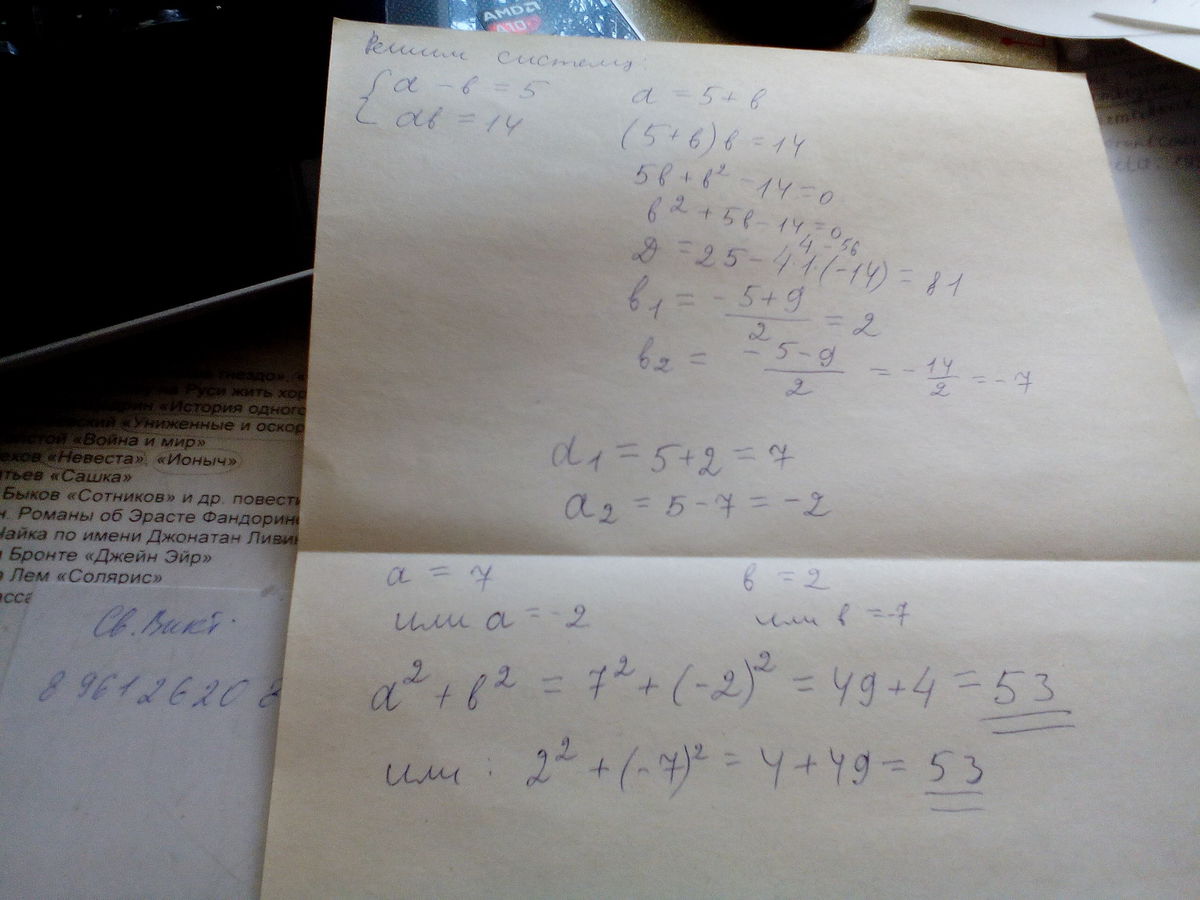 AMD
A10
Решим систему:
{ a - в = 5
aв = 14
a = 5 + в
(5 + в) в = 14
5в + в² - 14 = 0
в² + 5в - 14 = 0
4 - 56
Д = 25 - 4·1·(-14) = 81
в₁ = (-5+9)/2 = 2
в₂ = (-5-9)/2 = -14/2 = -7
a₁ = 5+2 = 7
a₂ = 5-7 = -2
a = 7 в = 2
или a = -2 или в = -7
a² + в² = 7² + (-2)² = 49 + 4 = 53
или : 2² + (-7)² = 4 + 49 = 53
гнездо», «
на Руси жить хор
«История одного
«Униженные и оскор
«Война и мир»
«Невеста», «Ионыч»
«Сашка»
Быков «Сотников» и др. повести
Романы об Эрасте Фандорине
Чайка по имени Джонатан Ливин
Бронте «Джейн Эйр»
Лем «Солярис»
Св. Викт.
8 961 2620 8